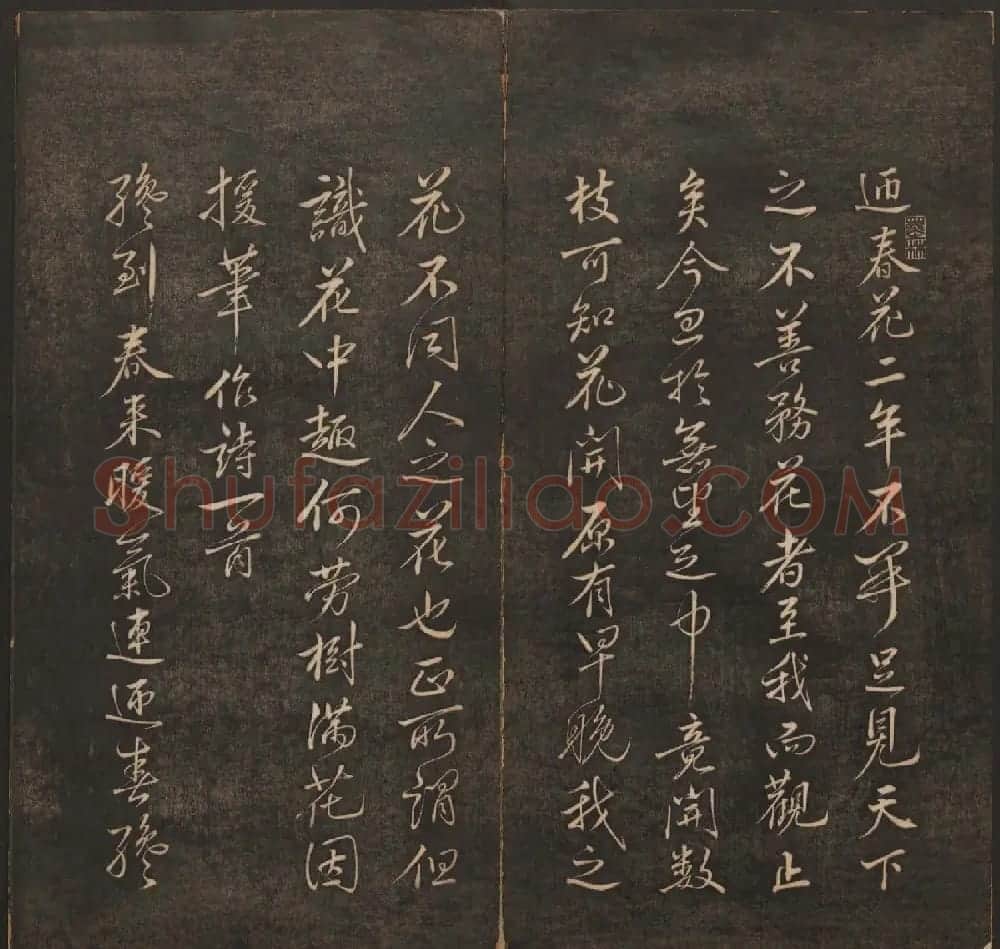 迎春花二年不开足見天下
之不善務花者至我而觀止
矣今忽於無望之中竟開数
枝可知花開原有早晚我之
花不同人之花也正所謂但
識花中趣何勞樹满花因
援筆作詩一首
纔到春来暖氣連迎春纔
Shufaziliao.COM